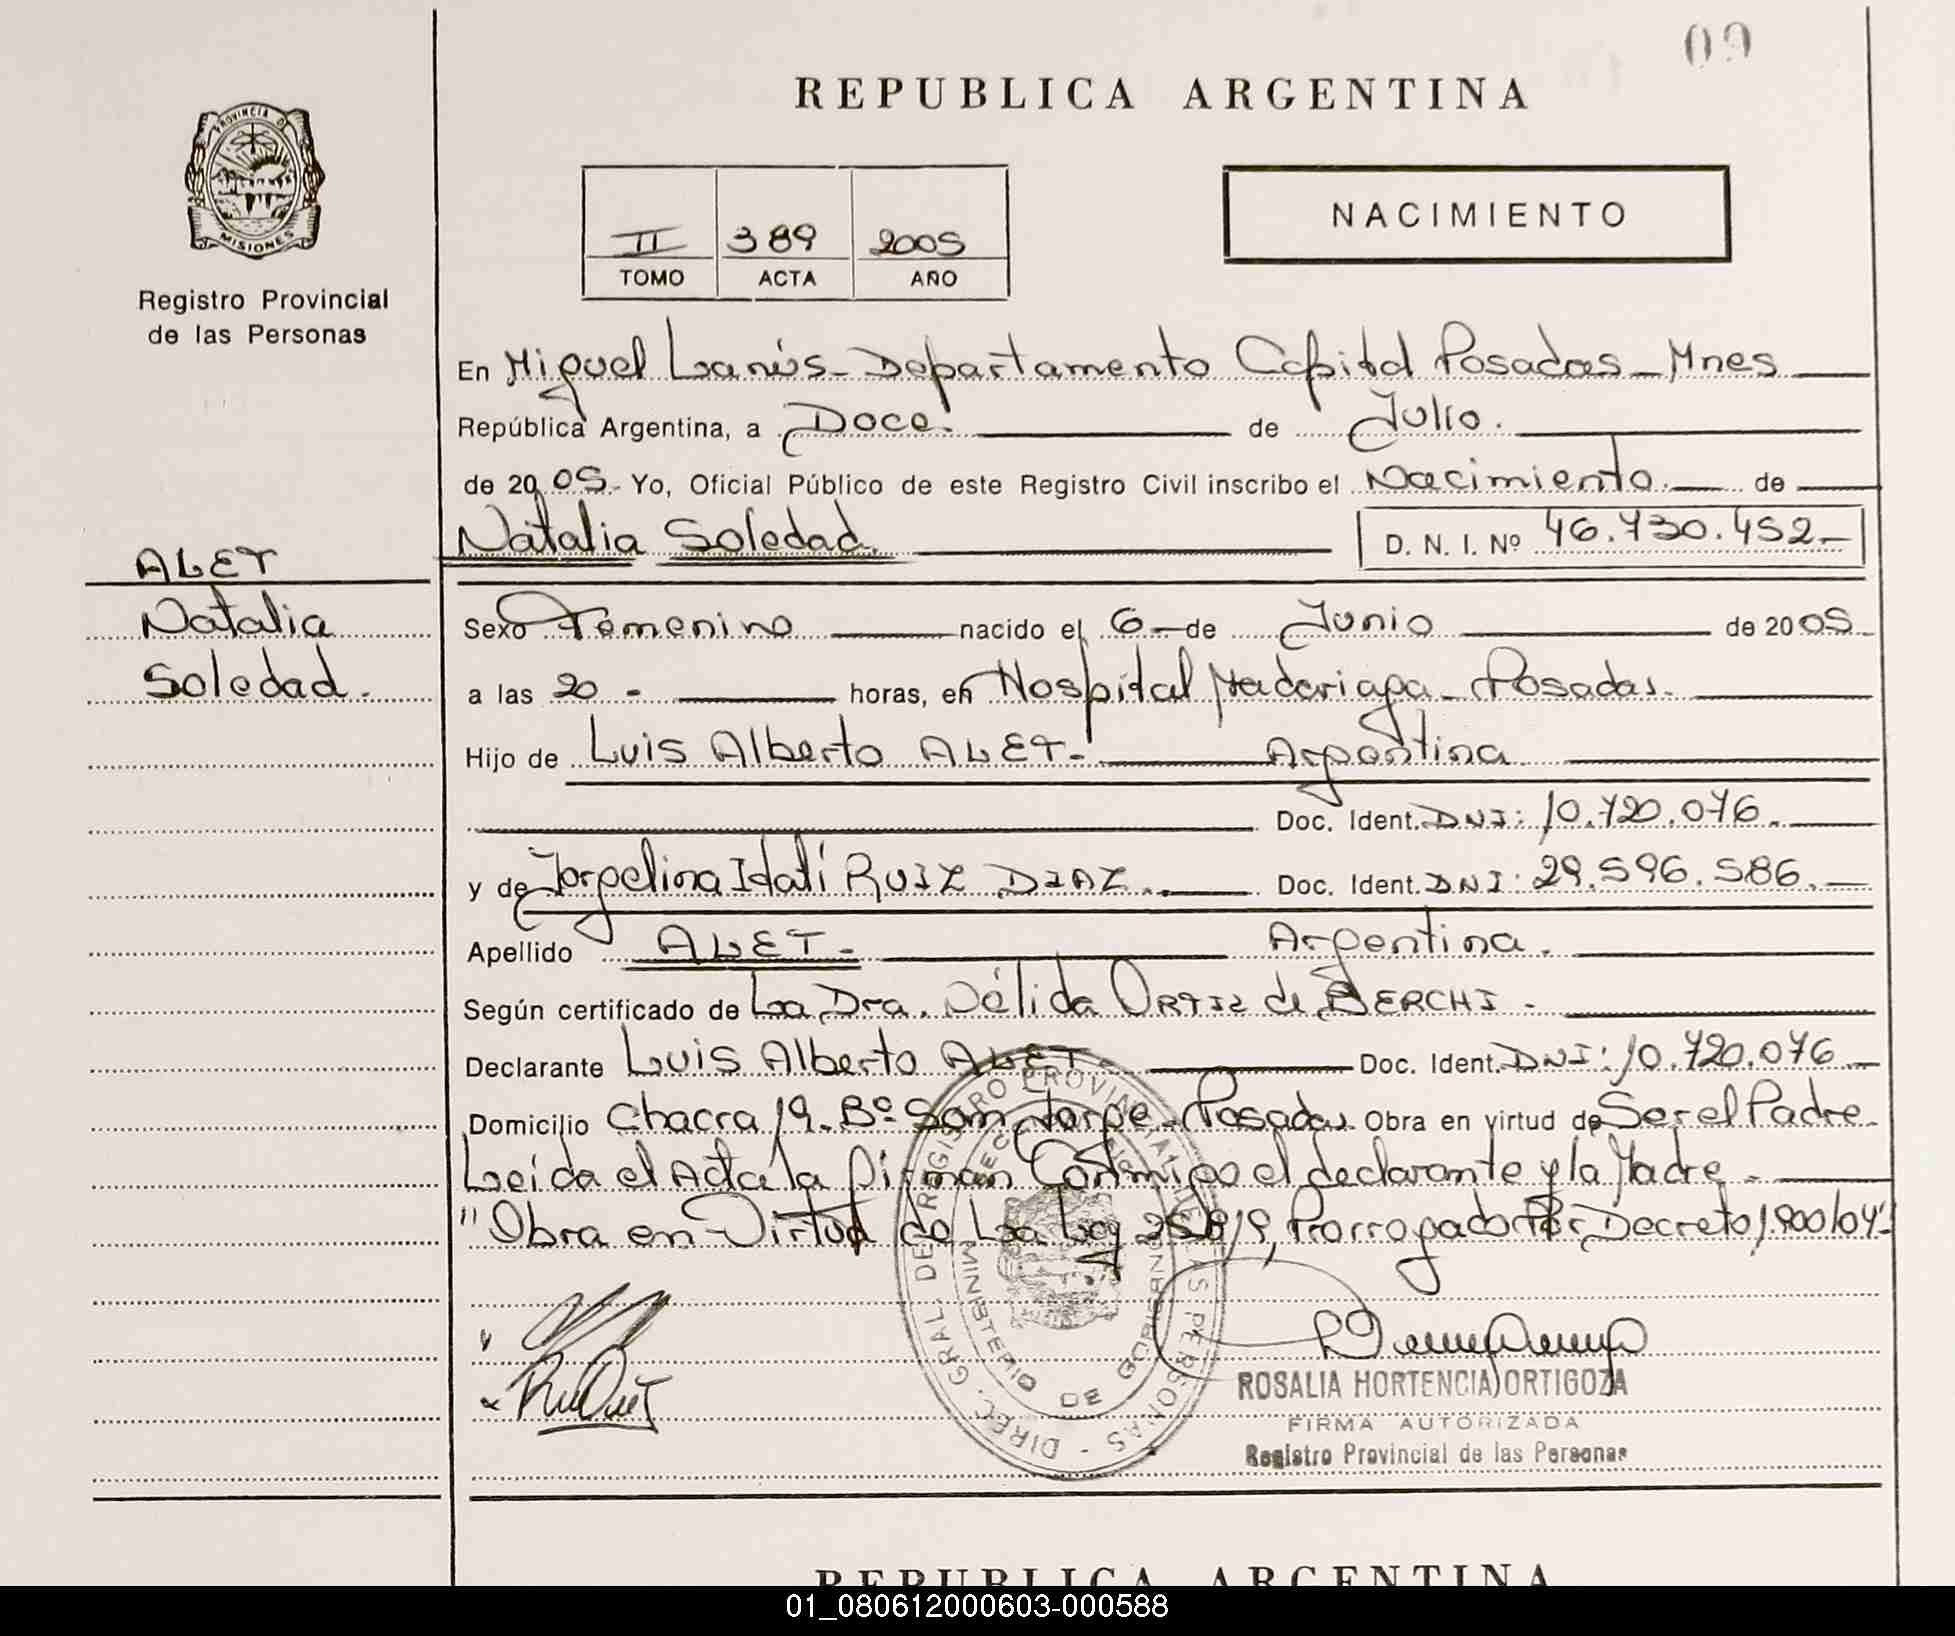 09
REPUBLICA ARGENTINA
PROVINCIA D
MISIONES
Registro Provincial
de las Personas
II 389 2005
TOMO ACTA AÑO
NACIMIENTO
En Miguel Lanús - Departamento Capital Posadas - Mnes
República Argentina, a Doce. de Julio.
de 2005 - Yo, Oficial Público de este Registro Civil inscribo el Nacimiento. de
Natalia Soledad. D. N. I. Nº 46.730.452-
ALET
Natalia
Soledad.
Sexo Femenino nacido el 6 - de Junio de 2005
a las 20 - horas, en Hospital Madariaga - Posadas.
Hijo de Luis Alberto ALET - Argentina
Doc. Ident. DNI: 10.720.076.
y de Jorgelina Itatí RUIZ DIAZ. Doc. Ident. DNI: 29.596.586.
Apellido ALET - Argentina.
Según certificado de La Dra. Nélida ORTIZ de BERCHI -
Declarante Luis Alberto ALET - Doc. Ident. DNI: 10.720.076
Domicilio Chacra 19 - Bº San Jorge - Posadas Obra en virtud de Ser el Padre.
Leída el Acta la firman Conmigo el declarante y la Madre -
"Obra en Virtud de La Ley 25819, Prorrogado Por Decreto 1900/04"
DIREC. GRAL. DE REGISTRO PROVINCIAL DE LAS PERSONAS
MINISTERIO DE GOBIERNO
ROSALIA HORTENCIA ORTIGOZA
FIRMA AUTORIZADA
Registro Provincial de las Personas
REPUBLICA ARGENTINA
01_080612000603-000588